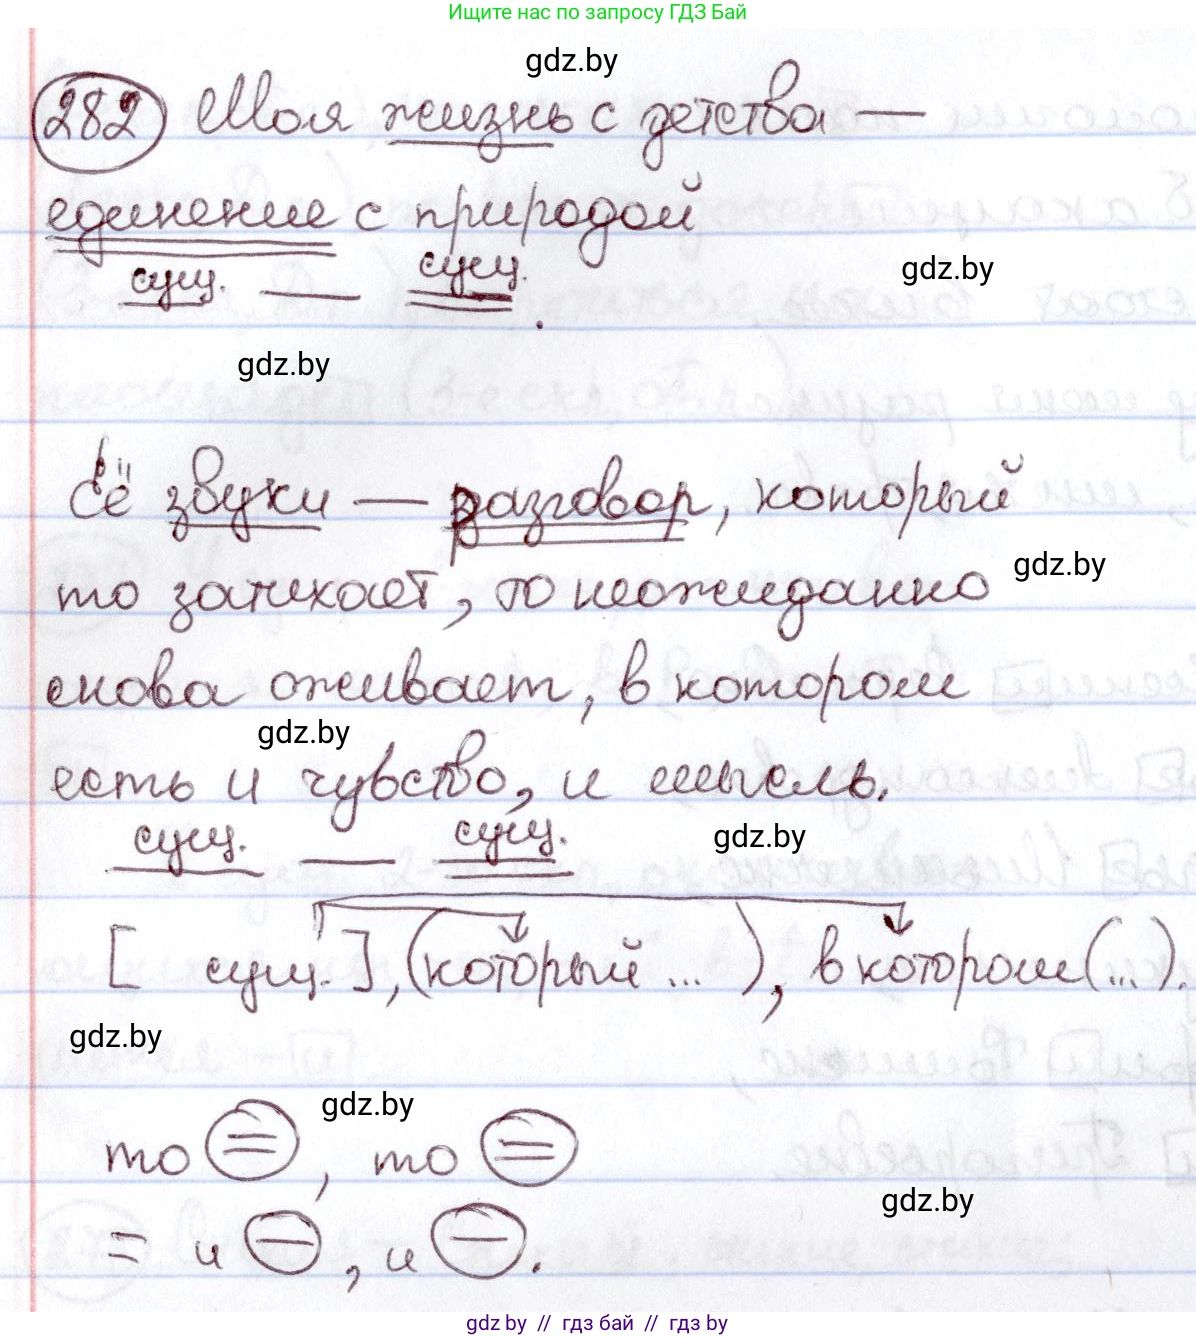 Ищите нас по запросу ГДЗ Бай
gdz.by
282 Моя жизнь с детства —
единение с природой
сущ. — сущ.
gdz.by
gdz.by
Её звуки — разговор, который
то затихает, то неожиданно
gdz.by
снова оживает, в котором
gdz.by
есть и чувство, и мысль.
сущ. — сущ.
gdz.by
[ сущ. ], (который ... ), в котором (...).
gdz.by
gdz.by
то =, то =
gdz.by
= и —, и —.
gdz.by // гдз бай // гдз by